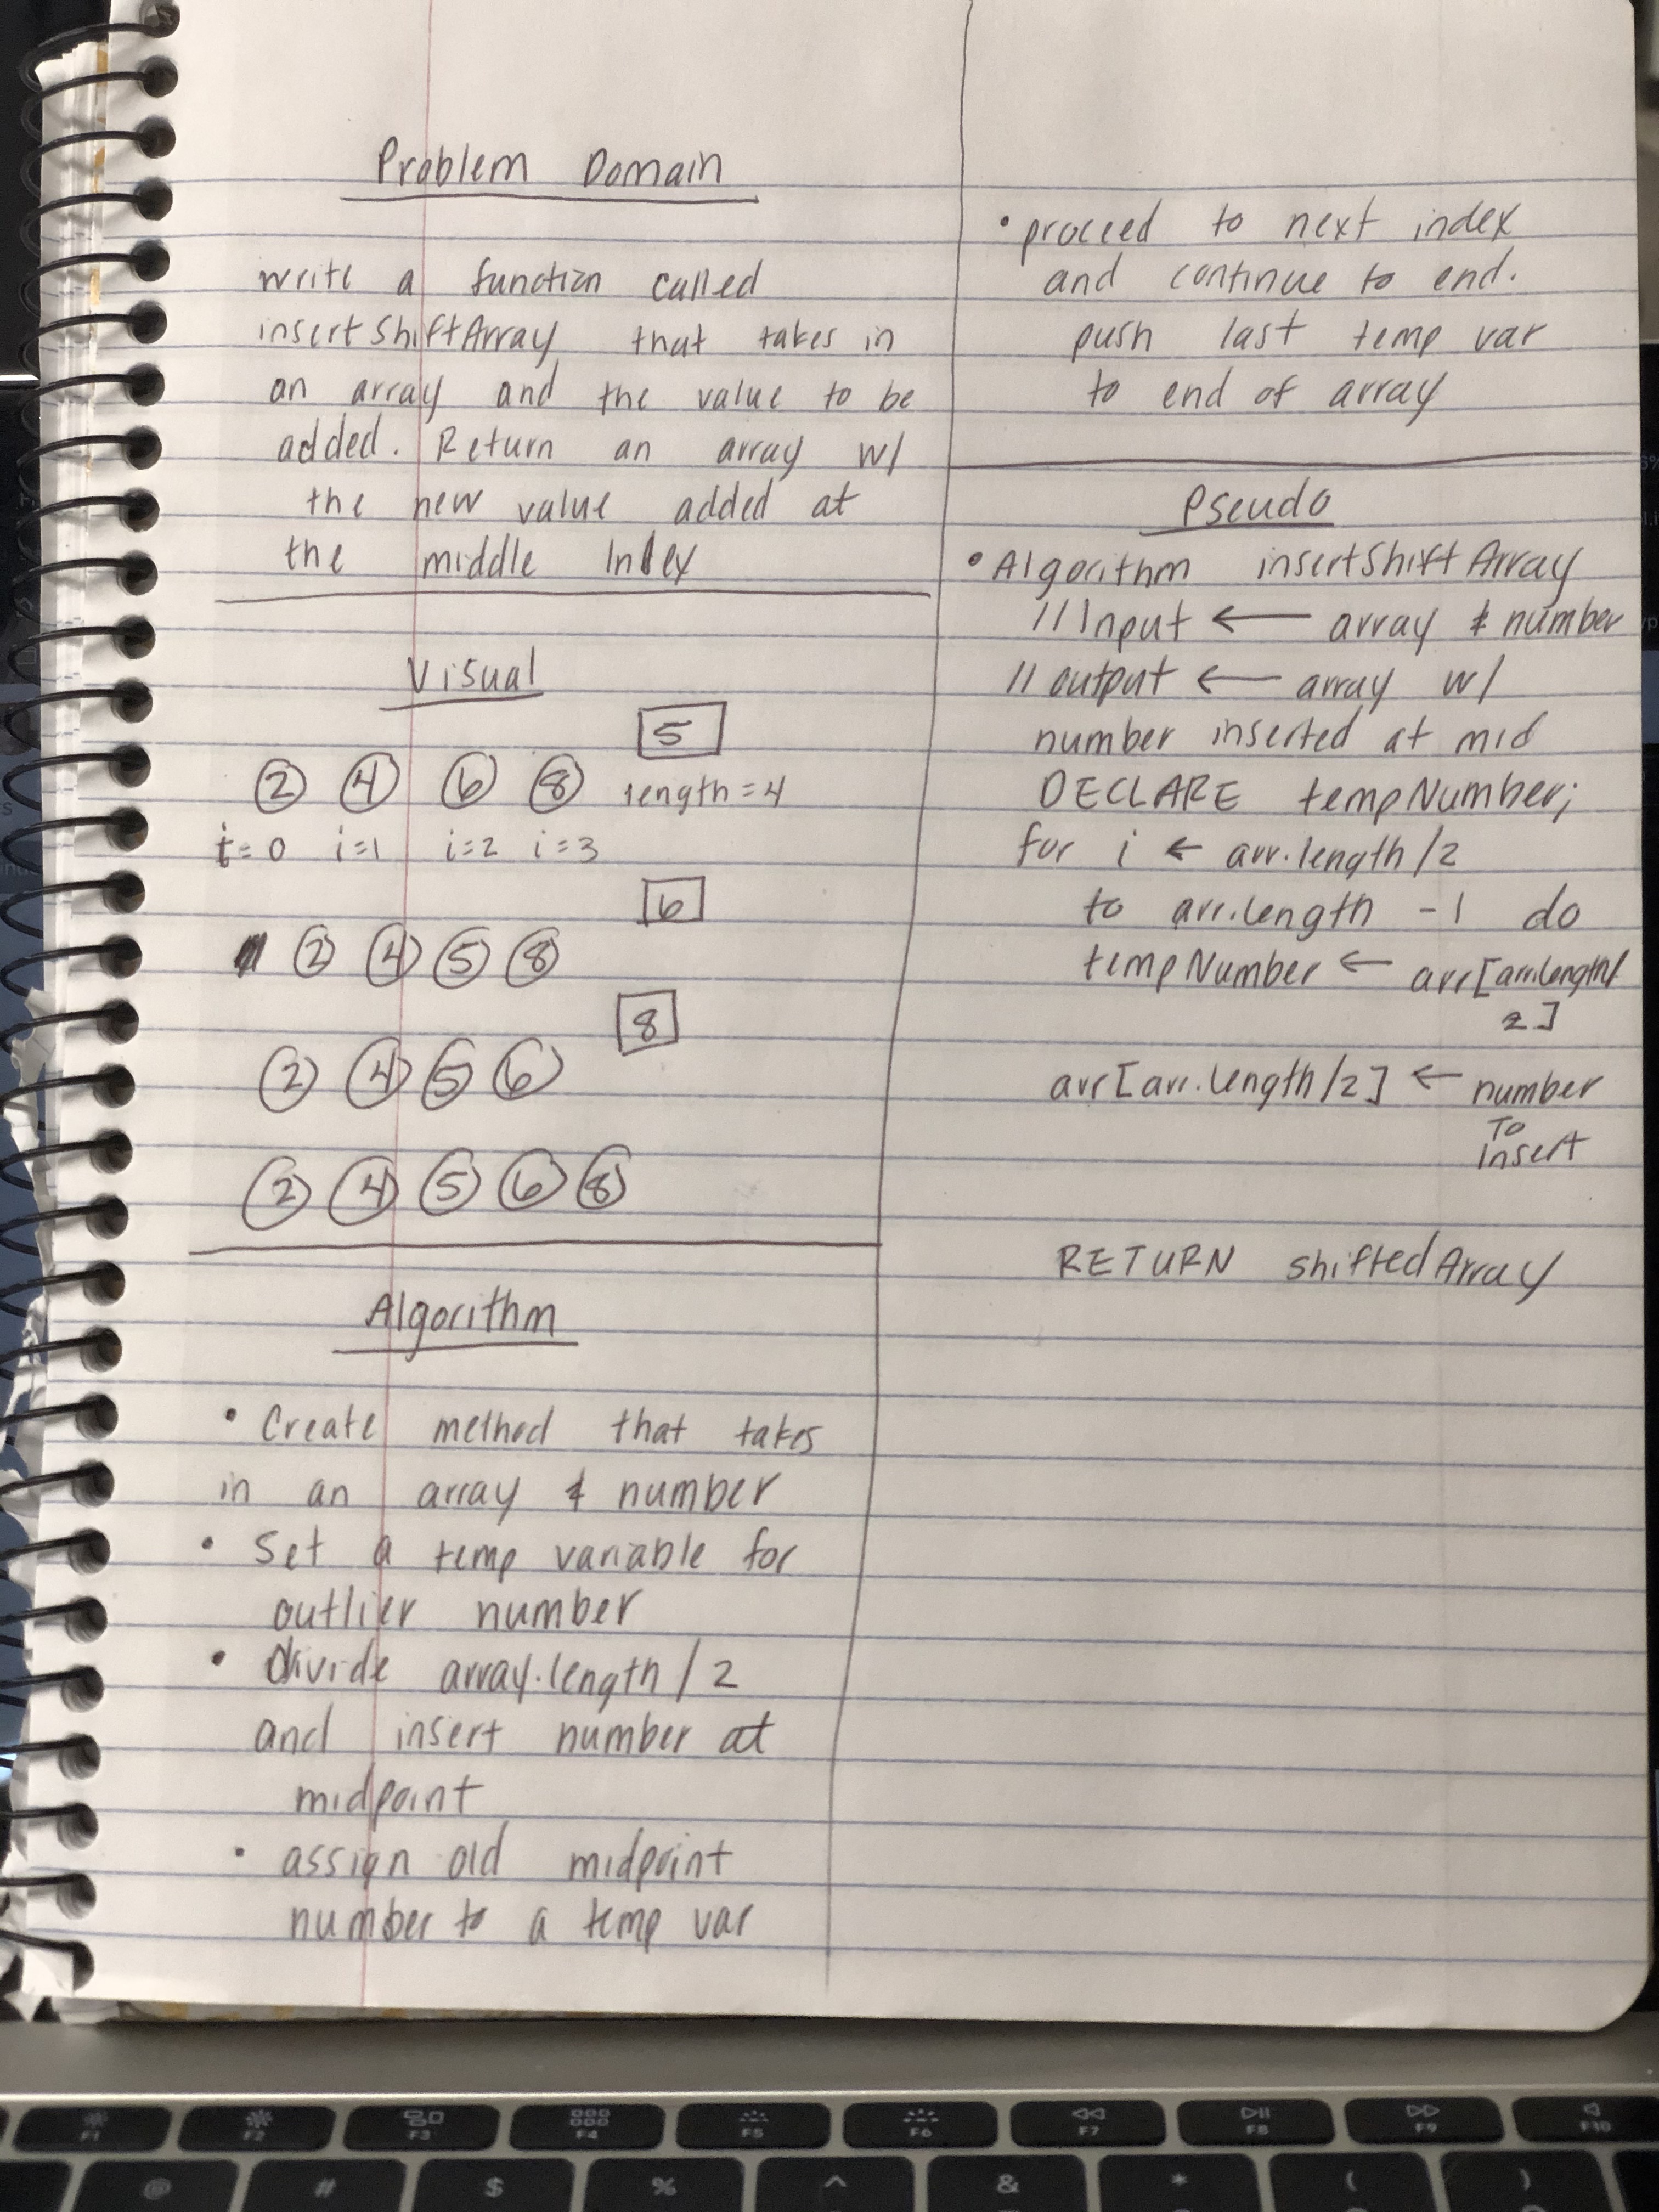 Problem Domain
write a function called
insertShiftArray that takes in
an array and the value to be
added. Return an array w/
the new value added at
the middle Index
Visual
5
2 4 6 8 length = 4
i=0 i=1 i=2 i=3
6
2 4 5 8
8
2 4 5 6
2 4 5 6 8
Algorithm
• Create method that takes
in an array & number
• Set a temp variable for
outlier number
• Divide array.length / 2
and insert number at
midpoint
• assign old midpoint
number to a temp var
• proceed to next index
and continue to end.
push last temp var
to end of array
Pseudo
• Algorithm insertShiftArray
// Input ← array & number
// output ← array w/
number inserted at mid
DECLARE tempNumber;
for i ← arr.length /2
to arr.length -1 do
tempNumber ← arr[arr.length/
2]
arr[arr.length/2] ← number
To
insert
RETURN shiftedArray
F1 F2 F3 F4 F5 F6 F7 F8 F9 F10
@ # $ % ^ & * ( )